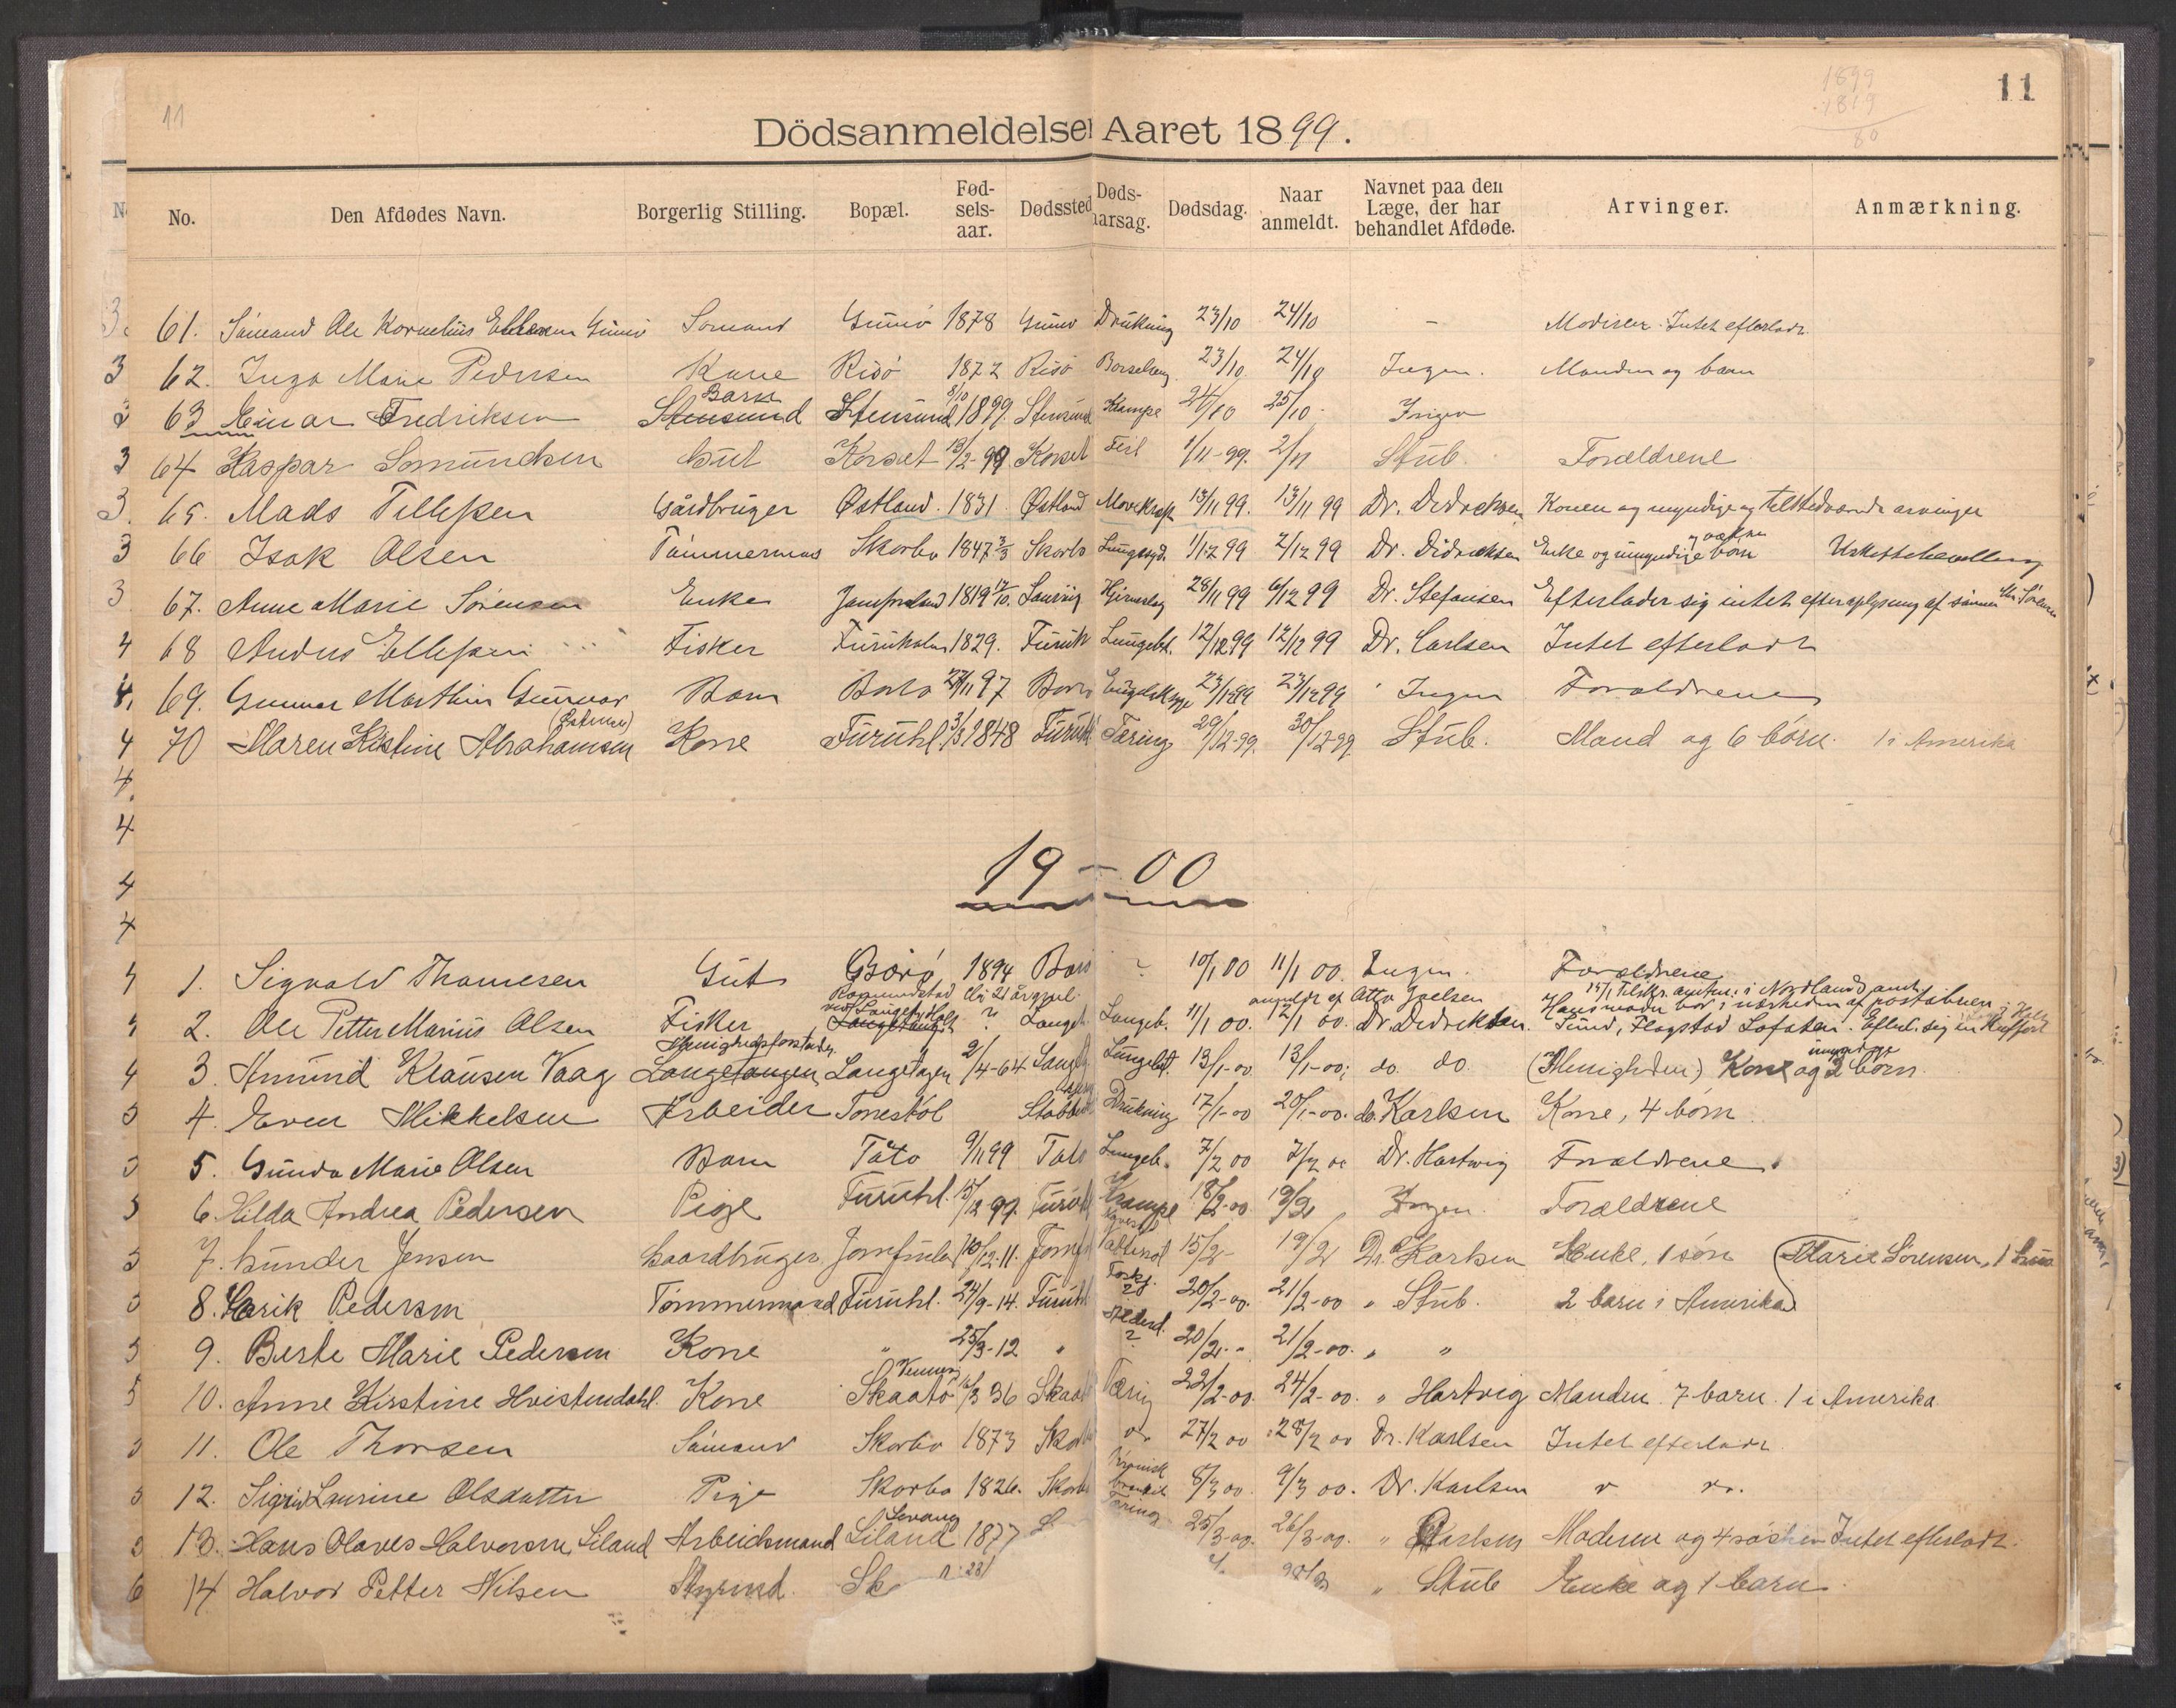 11
1899
1819
80
11
Dödsanmeldelser Aaret 1899.
No. Den Afdødes Navn. Borgerlig Stilling. Bopæl. Fød-sels-aar. Dødssted Døds-aarsag. Dødsdag. Naar anmeldt. Navnet paa den Læge, der har behandlet Afdøde. Arvinger. Anmærkning.
61. Sömand Ole Kornelius Ellefsen Gumö Sömand Gumö 1878 Gumö Drukning 23/10 24/10 – Moderen. Intet efterladt.
62. Inga Marie Pedersen Kone Risö 1872 Risö Barselseng 23/10 24/10 Ingen. Manden og barn
63 Einar Fredriksen Stensund Barn Stensund 8/10 1899. Stensund Krampe 24/10 25/10 Ingen
64 Kaspar Somundsen Gut Korset 13/2-99 Korset Feil 1/11-99. 2/11 Stub. Forældrene
65. Mads Tellefsen Gårdbruger Østland. 1831 Østland Mavekræft 13/11 99. 13/11 99 Dr. Didreksen Konen og myndige og tilstedværende arvinger
66 Isak Olsen Tömmermand Skorbo 1847 3/3 Skorbo Lungesyd. 1/12 99 2/12 99 Dr. Didreksen Enke og umyndige og voksne börn Uskiftebevilling
67. Anne Marie Sörensen Enke Jomfruland 1819 17/10. Sanvig Hjerneslag 28/11 99 6/12 99 Dr. Stefansen Efterlader sig intet efter oplysning af sönnen Sörensen
68 Anders Ellefsen Fisker Furuholm 1829. Furuh Lungebt. 12/12 99 12/12 99 Dr. Carlsen Intet efterladt
69. Gunnar Marthin Gunnar Barn Borö 27/11 97 Borö Engelsksyge 23/12 99 23/12 99 Ingen Forældrene
70 Maren Kistine Abrahamsen (Östensen) Kone Furuhl. 3/3 1848 Furuhl Tæring 29/12-99. 30/12-99. Stub. Mand og 6 börn. 1 i Amerika
19-00
1. Sigvald Thomesen Gut Borö 1894 Borö ? 10/1 00 11/1 00. Ingen. Forældrene
2. Ole Petter Marius Olsen Fisker ved Langetangen Langetangen ? Langet. Langeb. 11/1 00. anmeldt af Otto Joelsen 12/1 00. Dr. Didreksen. Hans moder bor i nærheden af postaabneri Sund, Flagstad Lofoten. Efterl. sig en Kuffert
3. Amund Klausen Vaag Menighedsforstander. Langetangen Langetagen 2/4-64 Langet Lungebt. 13/1-00 13/1-00; do. do. (Menigheden) Kone og 2 umyndige börn.
4. Even Mikkelsen Arbeider Toneskol Stabbest Drukning 17/1-00 20/1-00. do. Karlsen Kone, 4 börn
5. Gunda Marie Olsen Barn Tåtö 9/11 99 Tåtö Lungeb. 7/2 00 7/2 00 Dr. Hartwig Forældrene.
6. Hilda Andrea Pedersen Pige Furuhl. 15/12 99. Furuhl Krampe 18/2-00 19/2 Ingen. Forældrene
7. Gunder Jensen Gaardbruger Jomfruland 10/12-11. Jomfr 15/2- 19/2 Dr. Karlsen Enke, 1 sön (Marie Sörensen, 1
8. Lerik Pedersen Tömmermand Furuhl. 24/9-14. Furuhl ? 20/2-00. 21/2-00 " Stub. 2 barn i Amerika
9. Berte Marie Pedersen Kone " 25/3-12 " Alderd. ? 20/2 - " 21/2-00. " "
10. Anne Kirstine Hvistendahl. Kone Skaatö 16/3 36 Skaatö Tæring 22/2-00. 24/2-00. " Hartvig Manden. 7 barn. 1 i Amerika
11. Ole Thorsen Sömand Skorbo 1873 Skorb 27/2 00 28/2 00 Dr. Karlsen Intet efterladt
12. Sigrid Laurine Olsdatter Pige Skorbo 1826. Skorbo Kronisk bronkit 8/3 00. 9/3 00. Dr. Karlsen
13. Hans Olaves Halvorsen, Siland Arbeidsmand Levang Siland 1877 Tæring 25/3-00. 26/3-00. " Karlsen Moderen og 4 söskeen Intet efterladt.
14 Halvor Petter Nilsen Styrmd. Sk " Stub Enke og 1 barn.